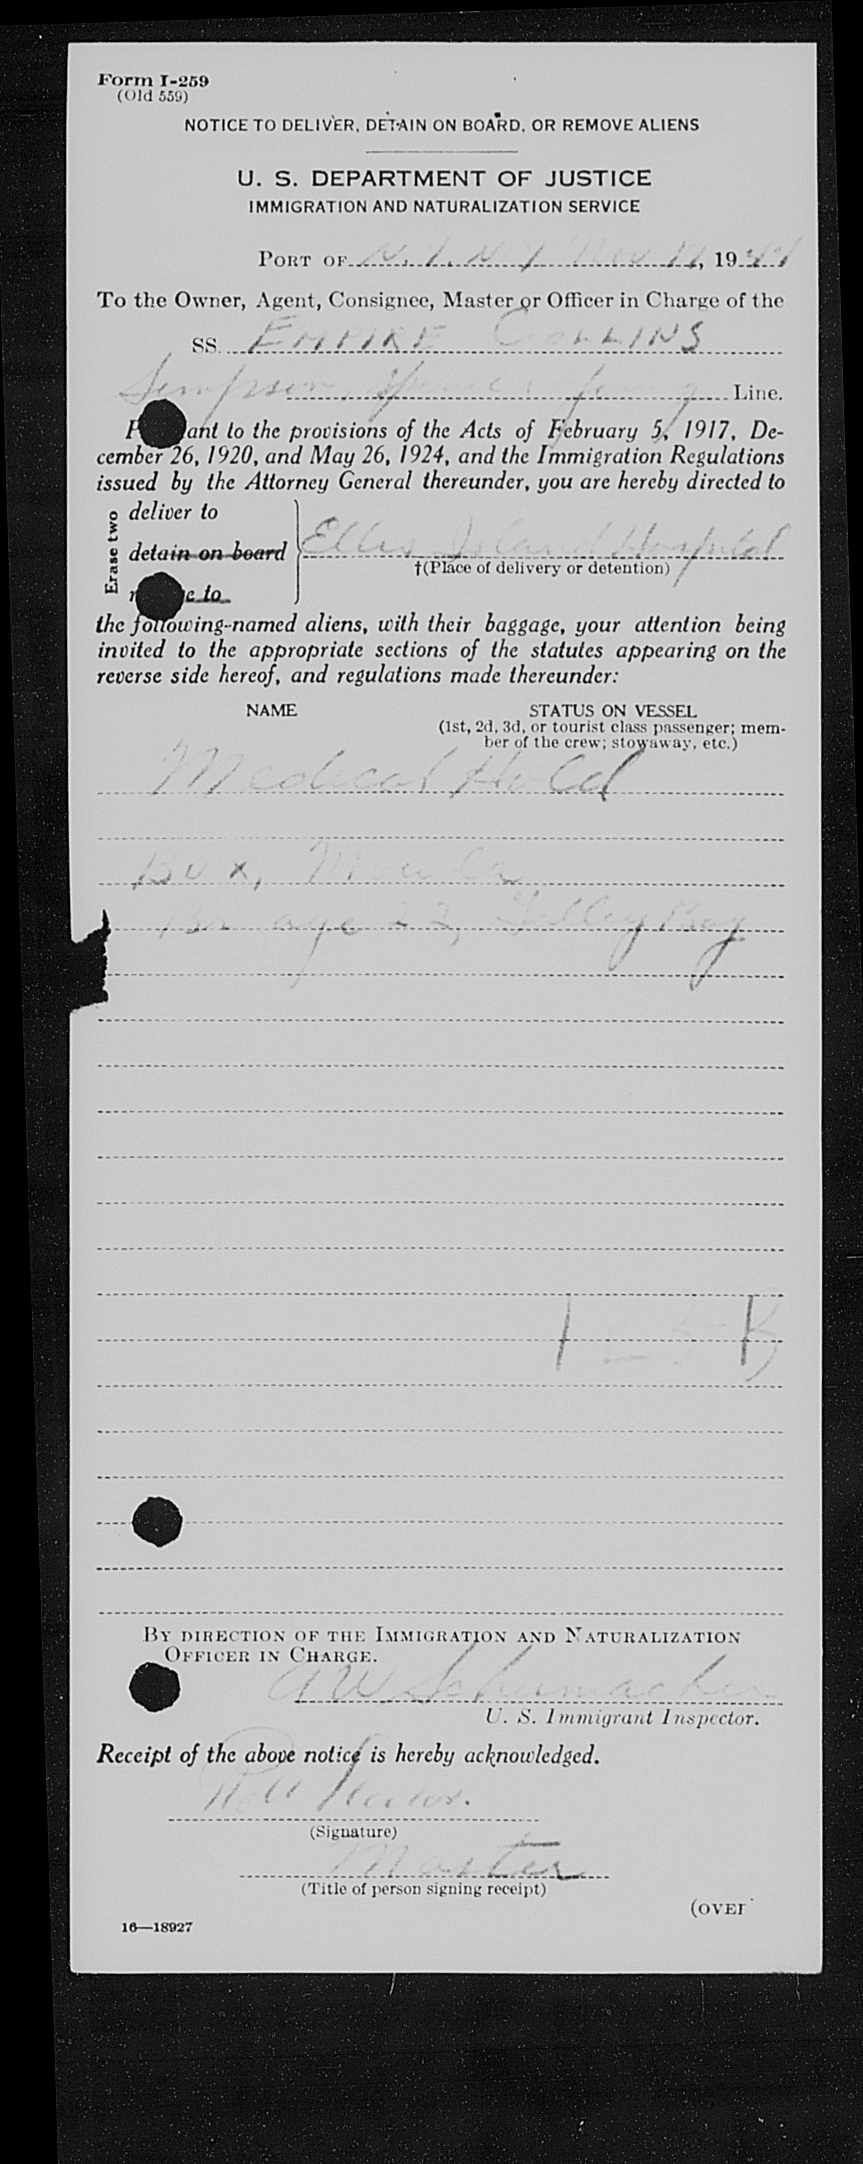 Form I-259
(Old 559)
NOTICE TO DELIVER, DETAIN ON BOARD, OR REMOVE ALIENS
U. S. DEPARTMENT OF JUSTICE
IMMIGRATION AND NATURALIZATION SERVICE
PORT OF N.Y. N Y Nov 19, 1944
To the Owner, Agent, Consignee, Master or Officer in Charge of the
SS. EMPIRE COLLINS
Simpson, Spence & Young Line.
P ant to the provisions of the Acts of February 5, 1917, De-
cember 26, 1920, and May 26, 1924, and the Immigration Regulations
issued by the Attorney General thereunder, you are hereby directed to
Erase two
deliver to
detain on board Ellis Island Hospital
†(Place of delivery or detention)
r e to
the following-named aliens, with their baggage, your attention being
invited to the appropriate sections of the statutes appearing on the
reverse side hereof, and regulations made thereunder:
NAME STATUS ON VESSEL
(1st, 2d, 3d, or tourist class passenger; mem-
ber of the crew; stowaway, etc.)
Medical Hold
Bux,
Br age 22, Galley Boy
1
By direction of the Immigration and Naturalization
Officer in Charge.
A W Schumacher
U. S. Immigrant Inspector.
Receipt of the above notice is hereby acknowledged.
(Signature)
Master
(Title of person signing receipt)
(OVER
16—18927